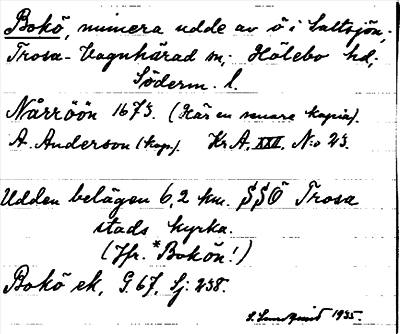 Bokö, numera udde av ö i Saltsjön,
Trosa-Vagnhärad sn; Hölebo hd;
Söderm. l.
Nårröön 1673. (Här en senare kopia).
A. Anderson (kop). Kr A, XXII, N:o 23.
Udden belägen 6,2 km. SSÖ Trosa
stads kyrka.
(Jfr. *Bokön!)
Bokö ek, G. 67, Sj: 238.
1935